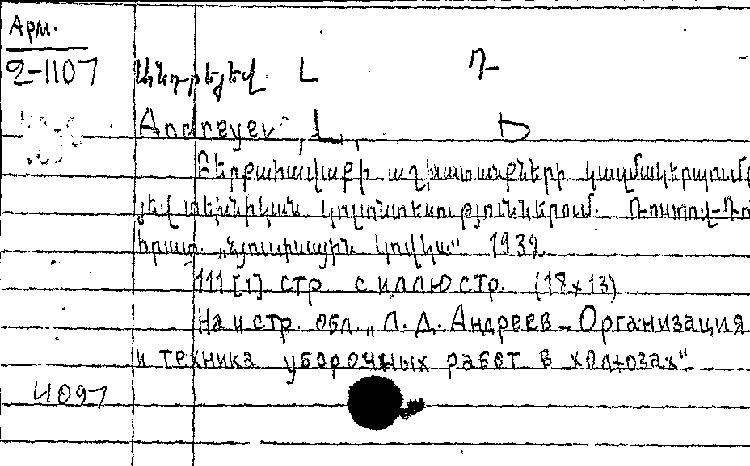 Арм.
2-1107
Անդրեյեվ Լ Դ
Andreyev L, D
Բերքահավաքի աշխատանքների կազմակերպումը
յեվ տեխնիկան կոլտնտեսություններում. Ռոստով-Դո
հրատ. „Հյուսիսային կովկաս" 1932
111 [1] стр с иллюстр. (18x13)
На 11 стр. обл. „Л. Д. Андреев - Организация
и техника уборочных работ в колхозах"
4097